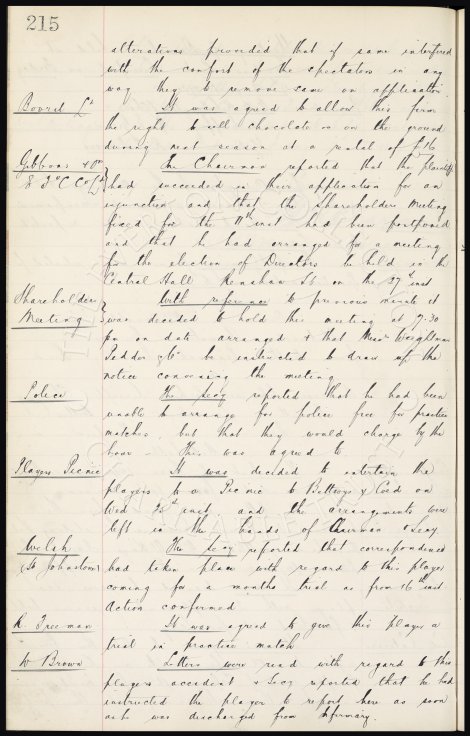 215
alterations provided that if same interfered
with the comfort of the spectators in any
way they to remove same on application
Bovril Ld It was agreed to allow this firm
the right to sell chocolates on the ground
during next season at a rental of £16
Gibbons & Ors The Chairman reported that the plaintiffs
E F C Co Ld had succeeded in their application for an
injunction and that the Shareholders Meeting
fixed for the 11th inst had been postponed
and that he had arranged for a meeting
for the election of Directors be held in the
Central Hall Renshaw St on the 27th inst
Shareholders With reference to previous minute it
Meeting was decided to hold this meeting at 7.30
pm on date arranged & that Messrs
& Co be instructed to draw up the
notice convening the meeting
Police The Secy reported that he had been
unable to arrange for police free for practice
matches but that they would charge by the
hour - This was agreed to
Players Picnic It was decided to entertain the
players to a Picnic to Bettwsy Coed on
Wed inst and the arrangements were
left in the hands of Chairman & Secy
Welsh The Secy reported that correspondence
St Johnstone had taken place with regard to this player
coming for a months trial as from 16th inst
Action confirmed
R. Freeman It was agreed to give this player a
trial in practice match
W Brown Letters were read with regard to this
players accident & Secy reported that he had
instructed the player to report here as soon
as he was discharged from Infirmary.